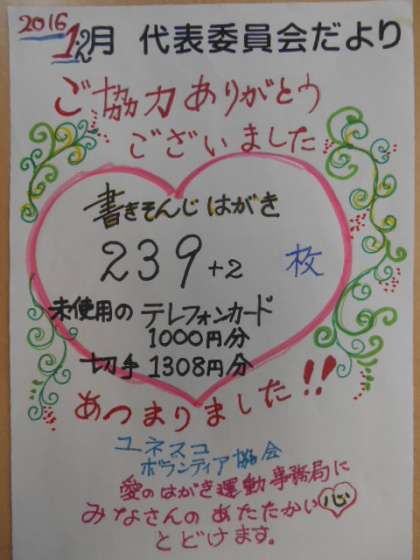 2016
12月 代表委員会だより
ご協力ありがとう
ございました
書きそんじはがき
239+2 枚
未使用の テレフォンカード
1000円分
切手 1308円分
あつまりました!!
ユネスコ
ボランティア協会
愛のはがき運動事務局に
みなさんのあたたかい心
とどけます。